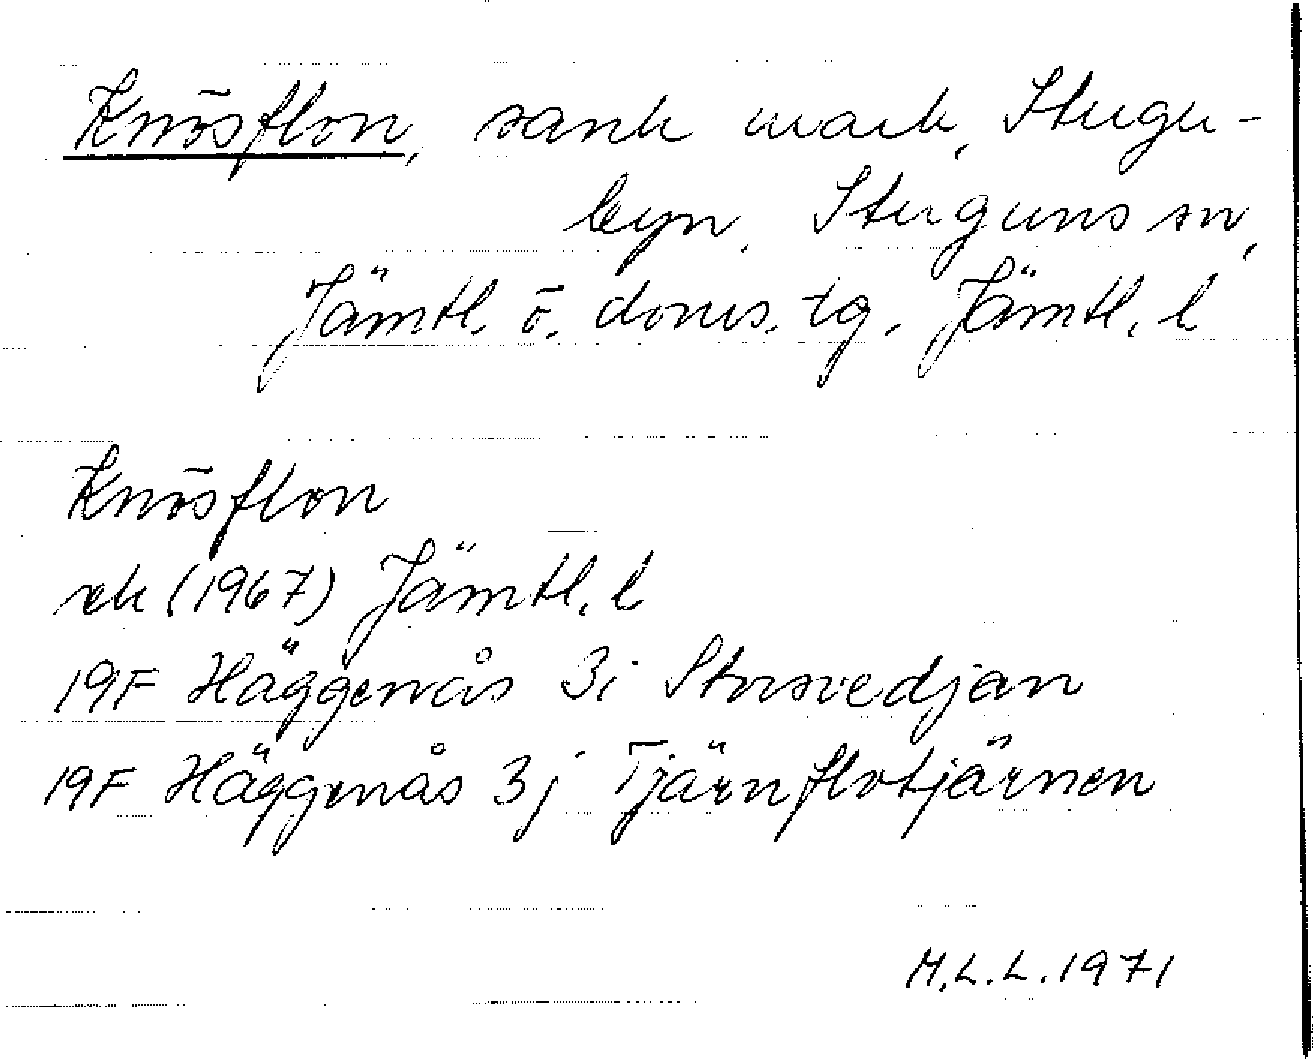 Knösflon, sank mark, Stugu-
byn, Stuguns sn,
Jämtl. ö. doms. tg, Jämtl. l
Knösflon
ek (1967) Jämtl. l
19F Häggenås 3i Storsvedjan
19F Häggenås 3j Tjärnflotjärnen
M.L.L. 1971